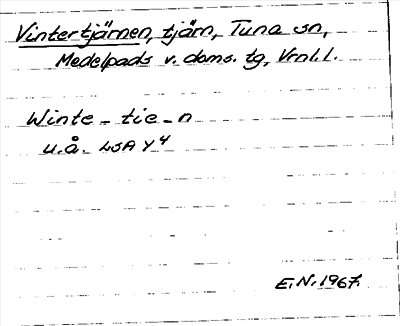 Vintertjärnen, tjärn, Tuna sn,
Medelpads v. doms. tg, Vrnl. l.
Winte - tie - n
u.å. LSA Y4
E.N. 1967.